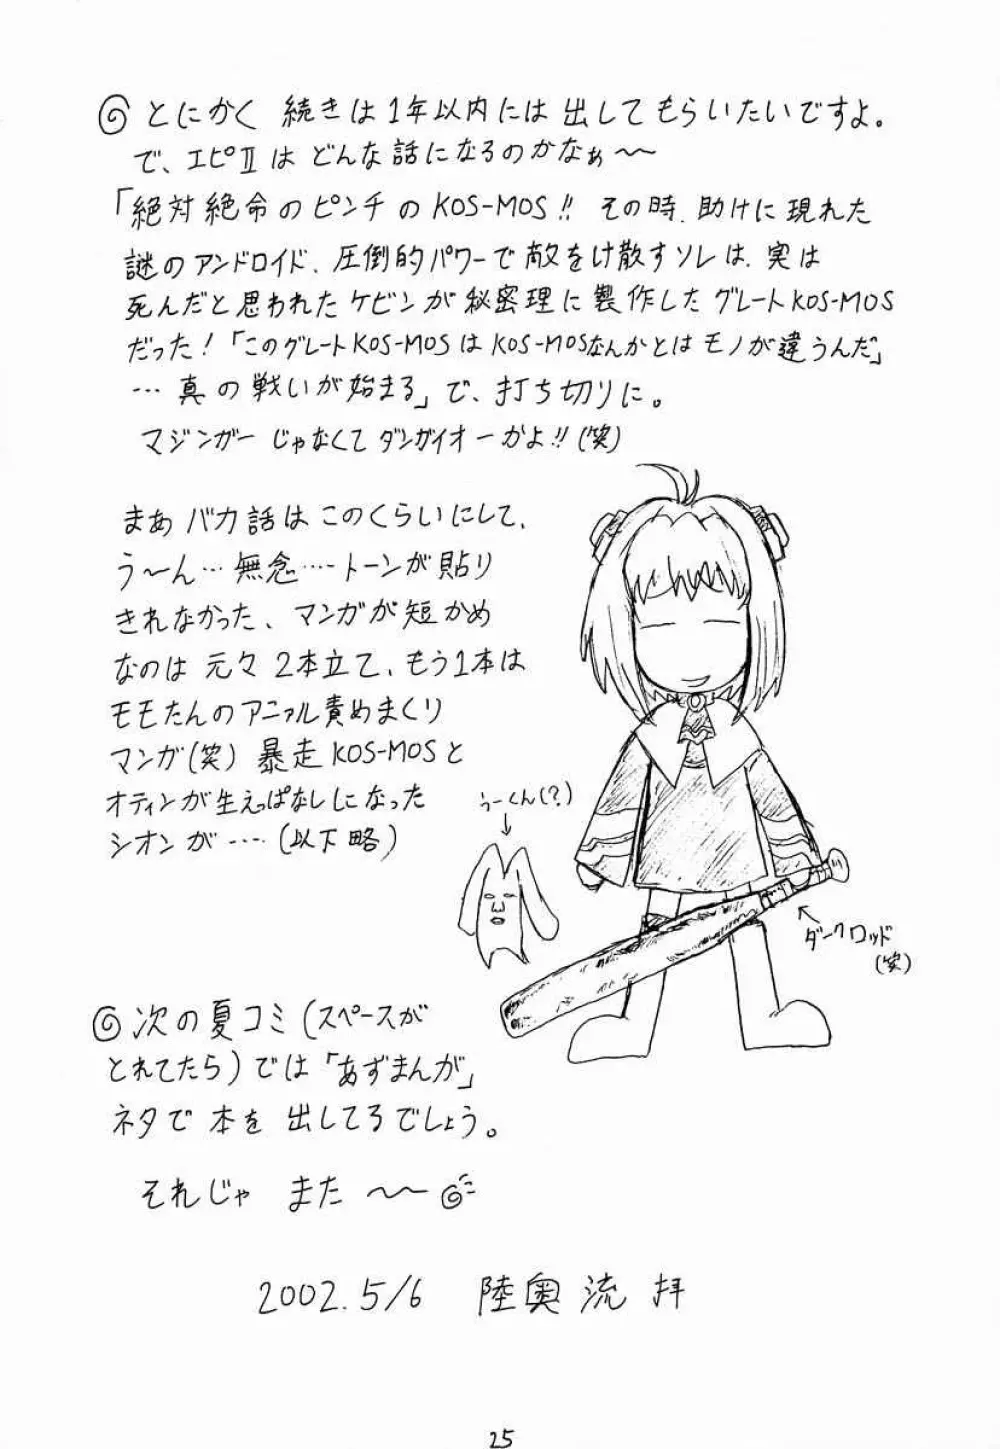 ◎とにかく 続きは1年以内には出してもらいたいですよ。
で、エピⅡはどんな話になるのかなぁ〜〜
「絶対絶命のピンチのKOS-MOS!! その時、助けに現れた
謎のアンドロイド、圧倒的パワーで敵をけ散すソレは、実は
死んだと思われたケビンが秘密理に製作したグレートKOS-MOS
だった!「このグレートKOS-MOSはKOS-MOSなんかとはモノが違うんだ」
…真の戦いが始まる」で、打ち切りに。
マジンガーじゃなくてダンガイオーかよ!!(笑)
まあバカ話はこのくらいにして、
う〜ん…無念…・トーンが貼り
きれなかった、マンガが短かめ
なのは元々2本立て、もう1本は
モモたんのアニァル責めまくり
マンガ(笑) 暴走KOS-MOSと
オティンが生えっぱなしになった
シオンが……(以下略)
うーくん(?)
↓
←ダークロッド
(笑)
◎次の夏コミ(スペースが
とれてたら)では「あずまんが」
ネタで本を出してるでしょう。
それじゃ また 〜〜◎
2002.5/6 陸奥流 拝
25